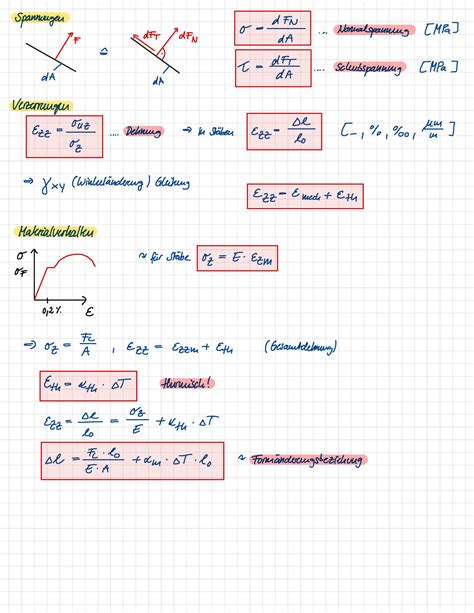 Spannungen
F dA ≙ dF_T dF_N dA
σ = dF_N / dA .... Normalspannung [MPa]
τ = dF_T / dA .... Schubspannung [MPa]
Verzerrungen
.... Dehnung ⇒ in Stäben ε_zz = Δl / l₀ [-, %, ‰, μm/m]
⇒ γ_xy (Winkeländerung) Gleitung
ε_zz = ε_mech + ε_th
Materialverhalten
σ σ_F 0,2% ε
≈ für Stäbe σ_z = E · ε_zm
⇒ σ_z = F_L / A , ε_zz = ε_zzm + ε_th (Gesamtdehnung)
ε_th = α_th · ΔT thermisch!
ε_zz = Δl / l₀ = σ_z / E + α_th · ΔT
Δl = F_L · l₀ / E · A + α_m · ΔT · l₀ ≈ Formänderungsbeziehung